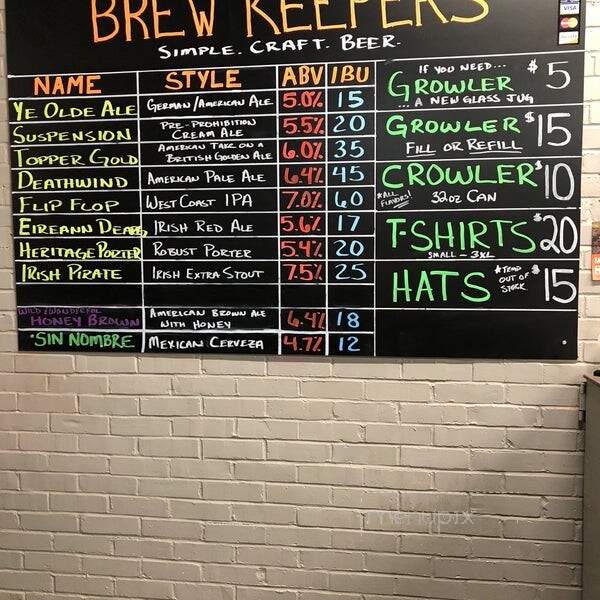 BREW KEEPERS
SIMPLE. CRAFT. BEER.
VISA
NAME STYLE ABV IBU
YE OLDE ALE GERMAN/AMERICAN ALE 5.0% 15
SUSPENSION PRE-PROHIBITION CREAM ALE 5.5% 20
TOPPER GOLD AMERICAN TAKE ON A BRITISH GOLDEN ALE 6.0% 35
DEATHWIND AMERICAN PALE ALE 6.4% 45
FLIP FLOP WEST COAST IPA 7.0% 60
EIREANN DEARG IRISH RED ALE 5.6% 17
HERITAGE PORTER ROBUST PORTER 5.4% 20
IRISH PIRATE IRISH EXTRA STOUT 7.5% 25
WILD & WONDERFUL
HONEY BROWN AMERICAN BROWN ALE WITH HONEY 6.4% 18
*SIN NOMBRE MEXICAN CERVEZA 4.7% 12
IF YOU NEED...
GROWLER $5
...A NEW GLASS JUG
GROWLER $15
FILL OR REFILL
CROWLER $10
*ALL FLAVORS! 32OZ CAN
T-SHIRTS $20
SMALL - 3XL
HATS *TEMP OUT OF STOCK $15
menupix